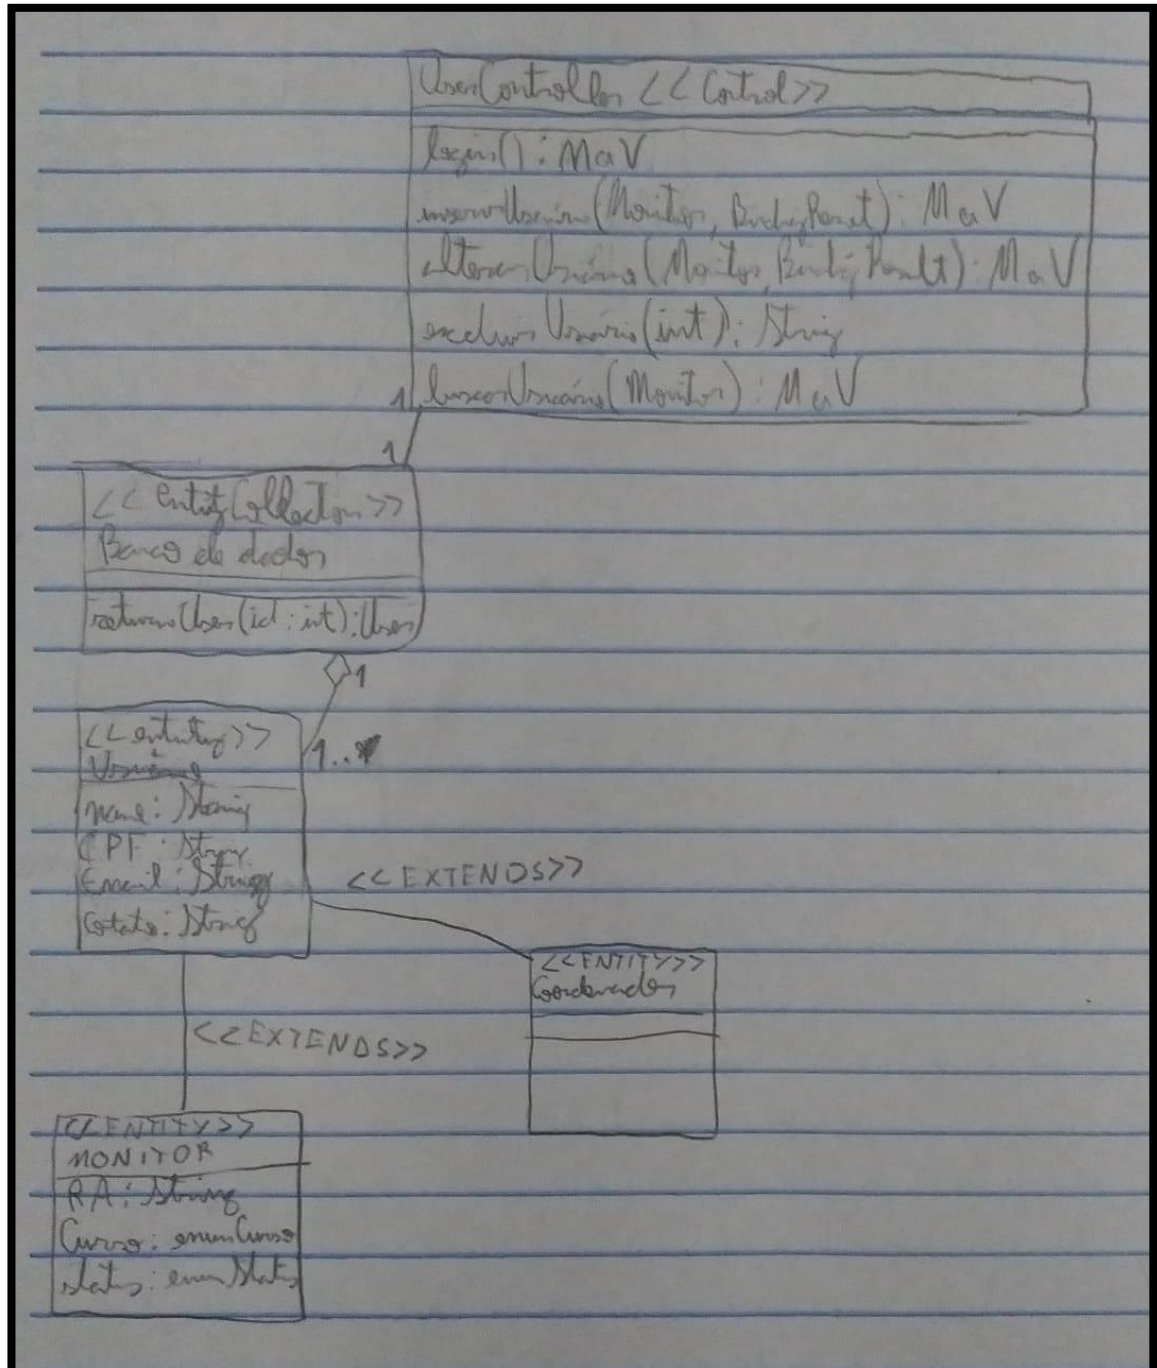 UserController <<Control>>
login(): MaV
inserirUsuário(Monitor, BindingResult): MaV
alterarUsuário(Monitor, BindingResult): MaV
excluirUsuário(int): String
1 buscarUsuário(Monitor): MaV
1
<<entityCollection>>
Banco de dados
returnUser(id: int): User
1
<<entity>>
Usuário
1..*
nome: String
CPF: String
Email: String
<<EXTENDS>>
Cotato: String
<<ENTITY>>
Coordenador
<<EXTENDS>>
<<ENTITY>>
MONITOR
RA: String
Curso: enumCurso
status: enumStatus